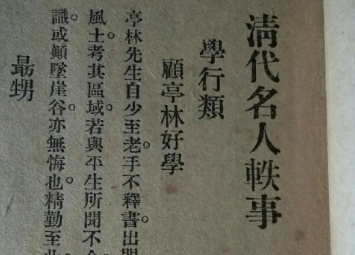 清代名人軼事
學行類
顧亭林好學
亭林先生自少至老。手不釋書出門
風土考其區域。若與平生所聞不合
識。或顚墜崖谷。亦無悔也。精勤至此
勗甥